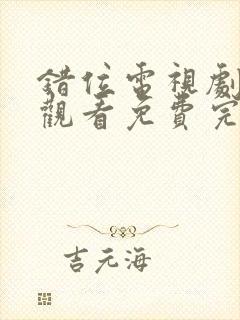 錯位電視劇
觀看免費完
吉元海